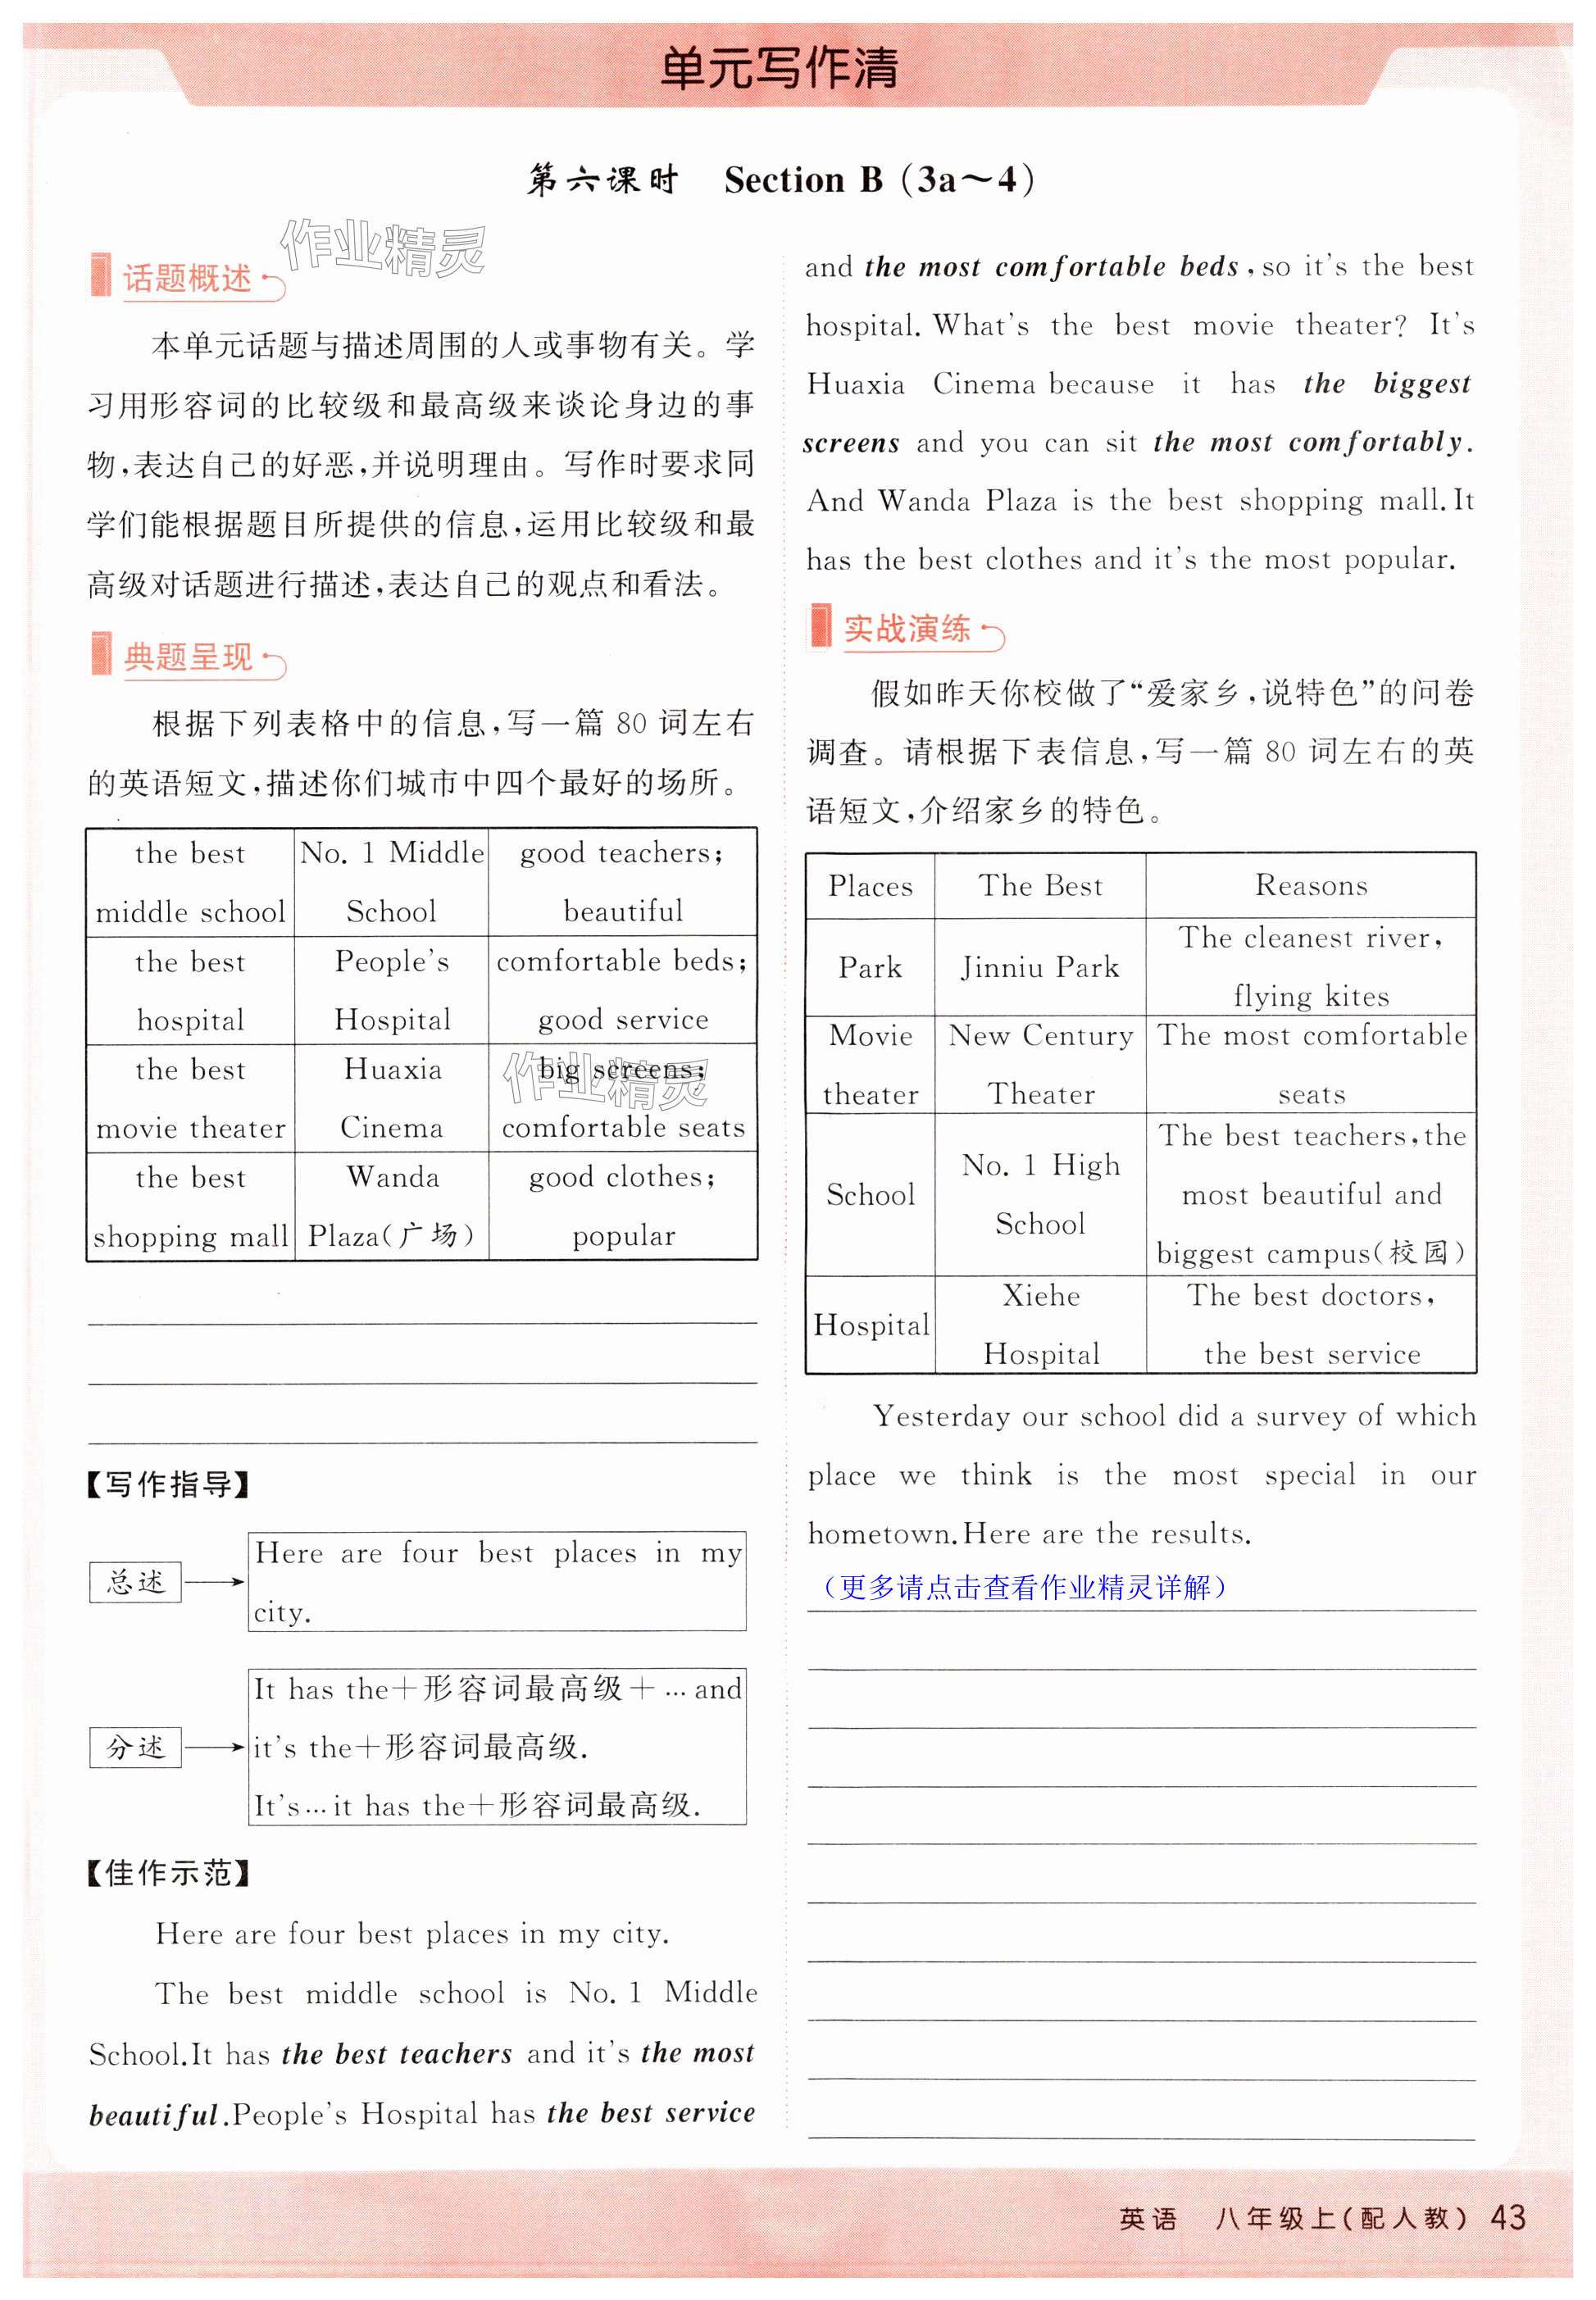 单元写作清
第六课时 Section B (3a～4)
作业精灵
话题概述
本单元话题与描述周围的人或事物有关。学
习用形容词的比较级和最高级来谈论身边的事
物,表达自己的好恶,并说明理由。写作时要求同
学们能根据题目所提供的信息,运用比较级和最
高级对话题进行描述,表达自己的观点和看法。
典题呈现
根据下列表格中的信息,写一篇 80 词左右
的英语短文,描述你们城市中四个最好的场所。
the best
middle school
No. 1 Middle
School
good teachers;
beautiful
the best
hospital
People's
Hospital
comfortable beds;
good service
the best
movie theater
Huaxia
Cinema
big screens;
comfortable seats
作业精灵
the best
shopping mall
Wanda
Plaza(广场)
good clothes;
popular
【写作指导】
总述
Here are four best places in my
city.
分述
It has the＋形容词最高级＋…and
it's the＋形容词最高级.
It's…it has the＋形容词最高级.
【佳作示范】
Here are four best places in my city.
The best middle school is No. 1 Middle
School.It has the best teachers and it's the most
beautiful.People's Hospital has the best service
and the most comfortable beds,so it's the best
hospital. What's the best movie theater? It's
Huaxia Cinema because it has the biggest
screens and you can sit the most comfortably.
And Wanda Plaza is the best shopping mall.It
has the best clothes and it's the most popular.
实战演练
假如昨天你校做了“爱家乡,说特色”的问卷
调查。请根据下表信息,写一篇 80 词左右的英
语短文,介绍家乡的特色。
Places
The Best
Reasons
Park
Jinniu Park
The cleanest river,
flying kites
Movie
theater
New Century
Theater
The most comfortable
seats
School
No. 1 High
School
The best teachers,the
most beautiful and
biggest campus(校园)
Hospital
Xiehe
Hospital
The best doctors,
the best service
Yesterday our school did a survey of which
place we think is the most special in our
hometown.Here are the results.
（更多请点击查看作业精灵详解）
英语 八年级上(配人教) 43